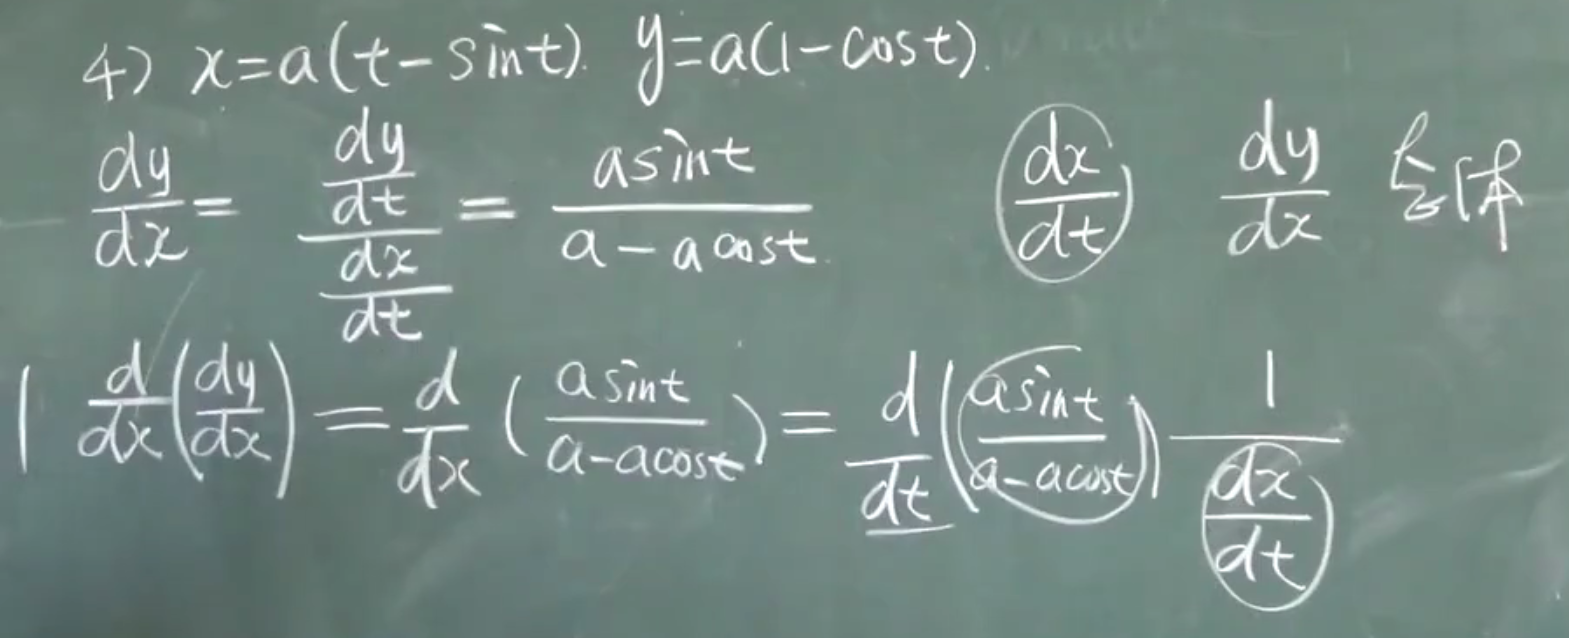 4) x=a(t-sint). y=a(1-cost).
dy/dx = (dy/dt)/(dx/dt) = asint/(a-acost) dx/dt dy/dx 整体
d/dx(dy/dx) = d/dx(asint/(a-acost)) = d/dt(asint/(a-acost)) 1/(dx/dt)